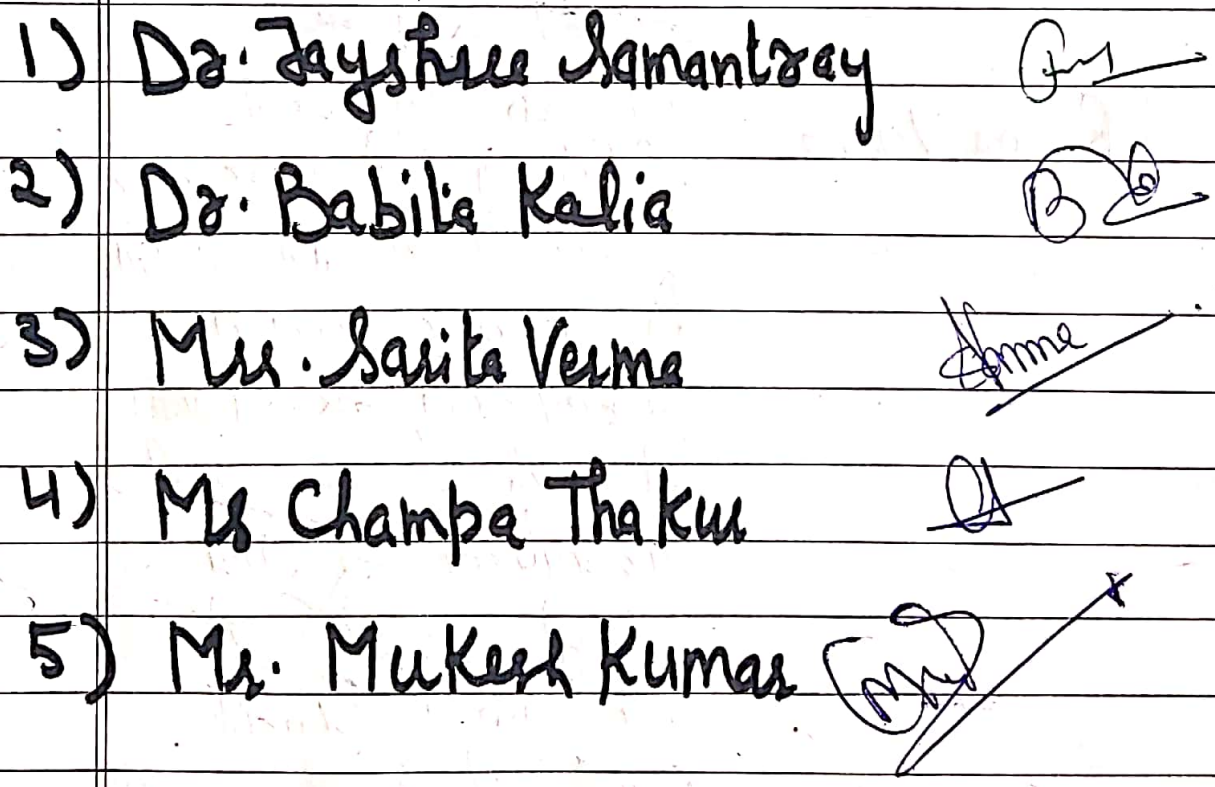 1) Dr. Jayshree Samantray
2) Dr. Babita Kalia
3) Mrs. Sarita Verma
4) Ms Champa Thakur
5) Mr. Mukesh Kumar